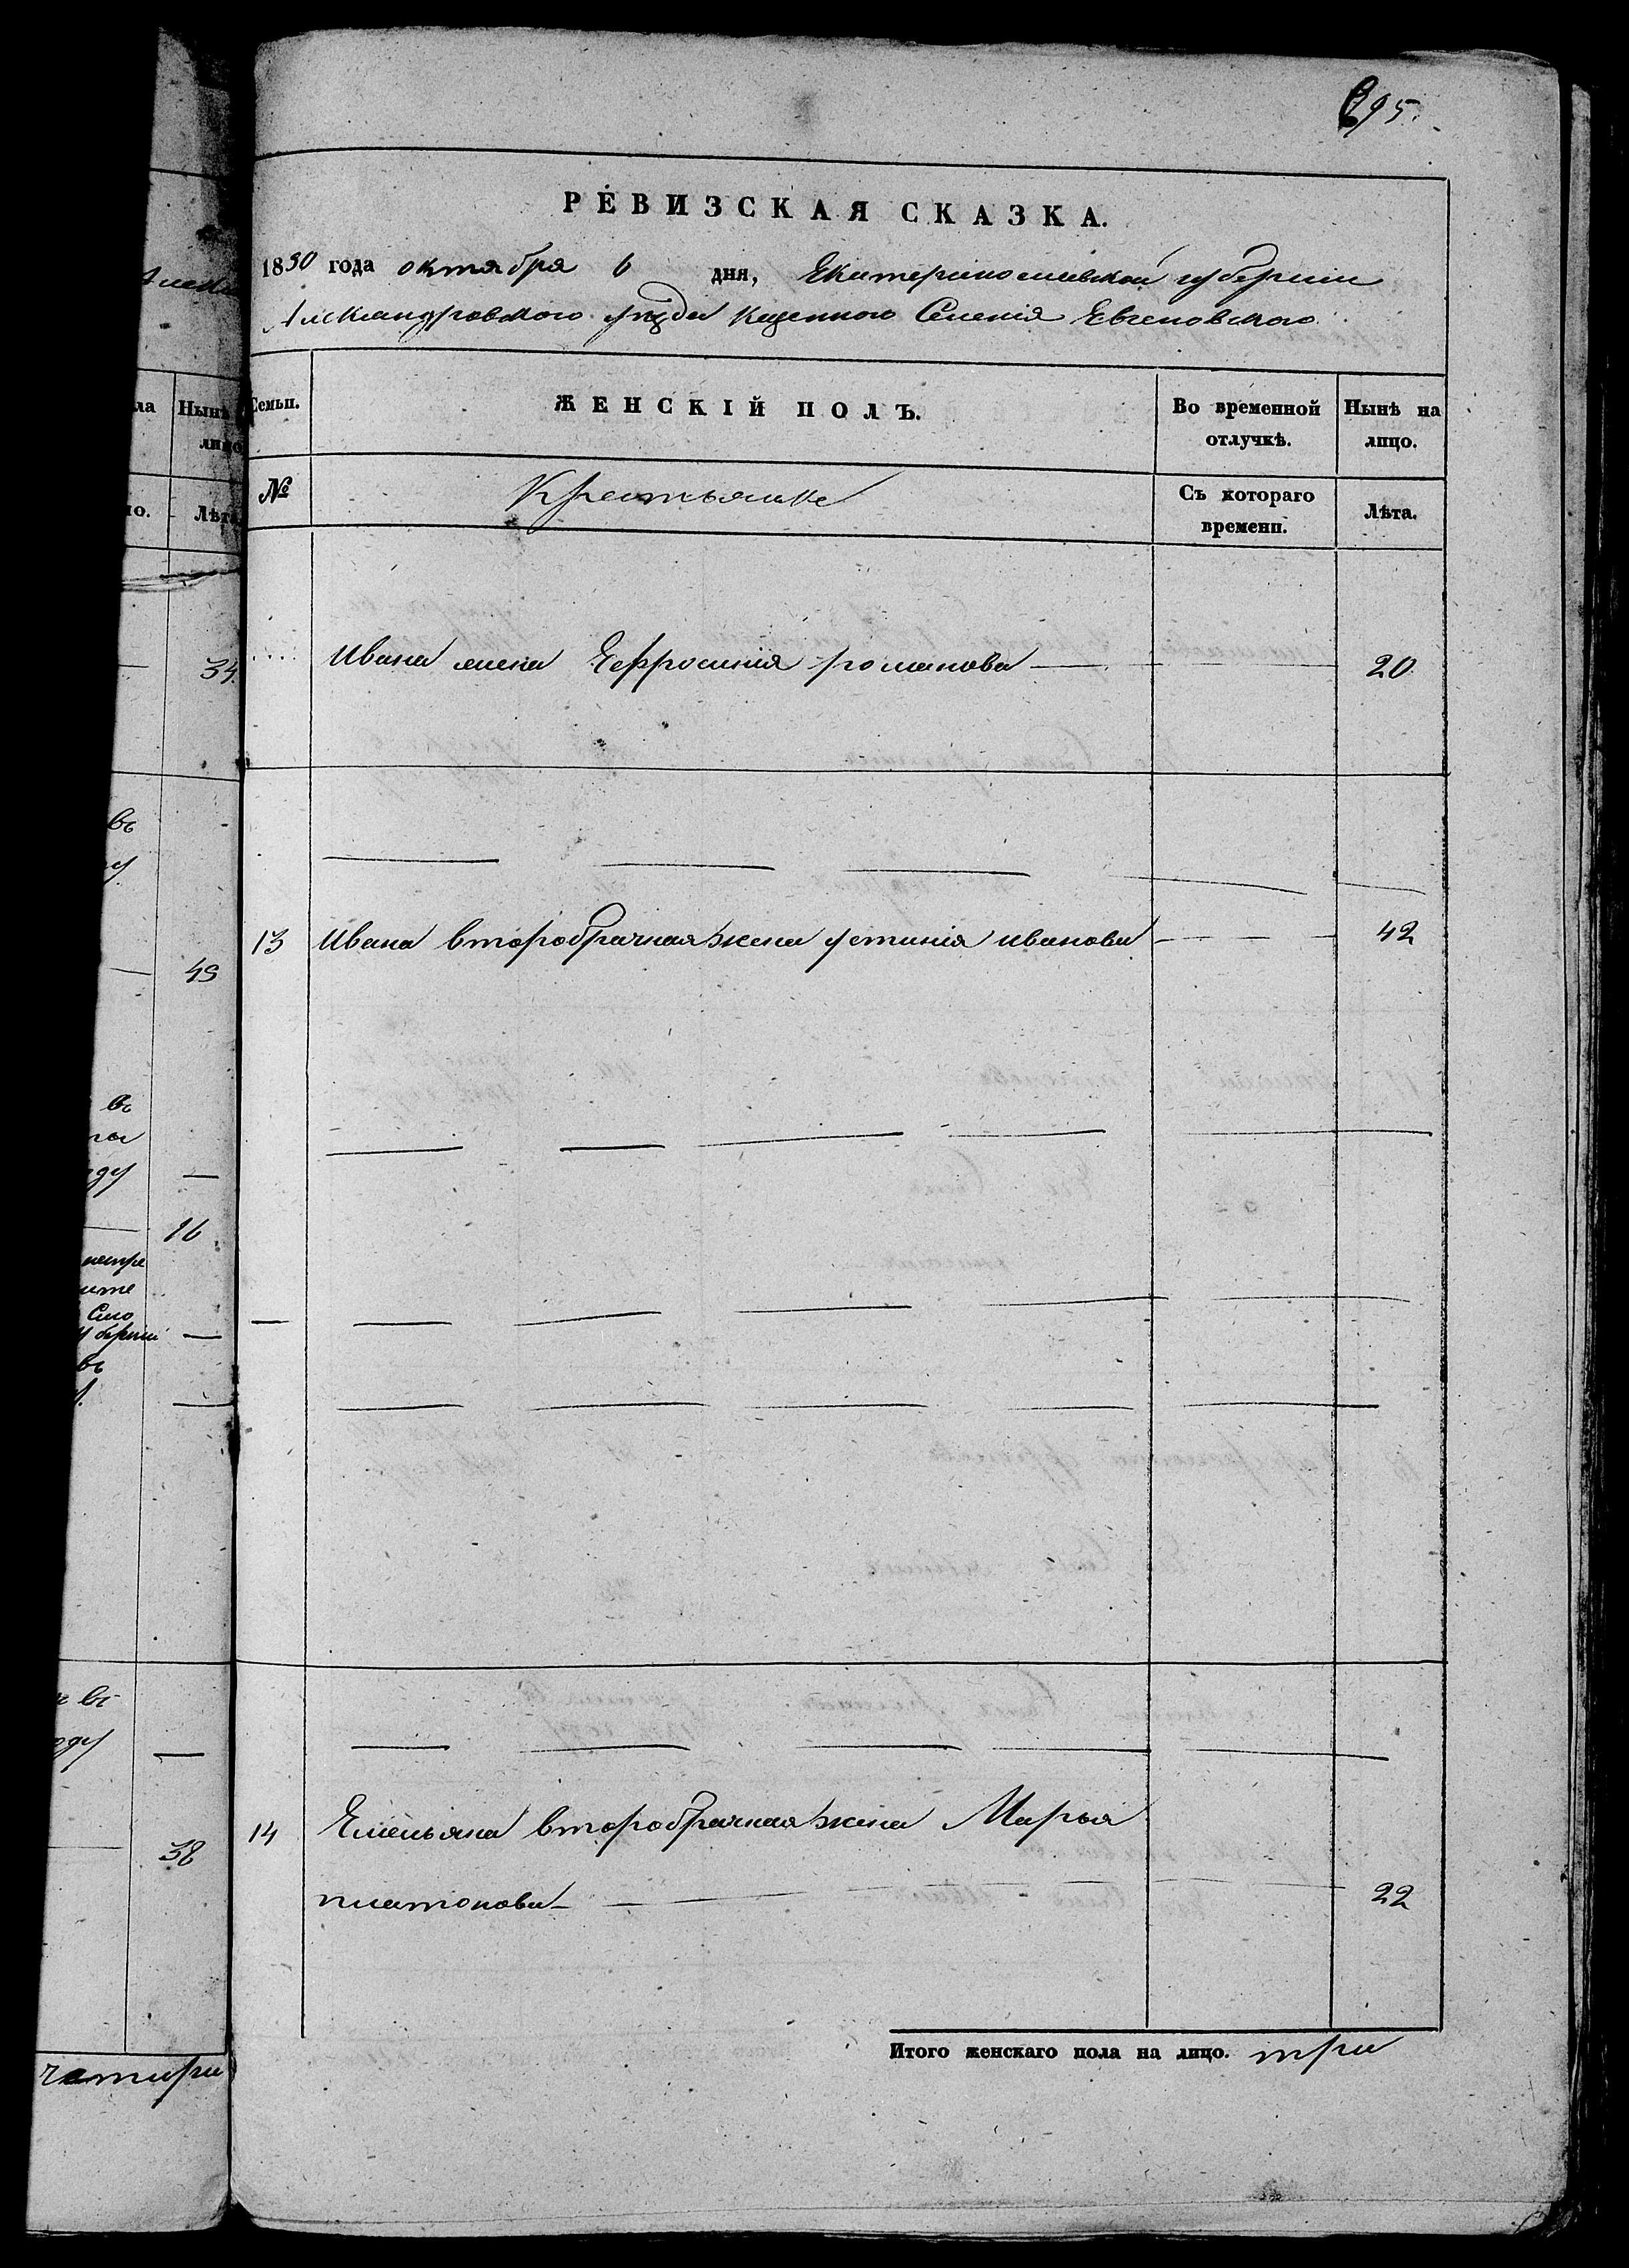 695.
РЕВИЗСКАЯ СКАЗКА.
1850 года октября 6 дня, Екатеринославской губернии
Александровского уезда казенного Селенія Евсеновского
Семьи. ЖЕНСКІЙ ПОЛЪ. Во временной отлучкѣ. Нынѣ на лицо.
№ Крестьянке Съ котораго времени. Лѣта.
Ивана жена Ефросинія романова 20
13 Ивана второбрачная жена устинія иванова 42
14 Емельяна второбрачная жена Марья
платонова 22
Итого женскаго пола на лицо. три
ла Нынѣ
лицо
ло. Лѣта
34.
въ
у.
49
въ
оду
16
въ
въ
оду
38
четыри